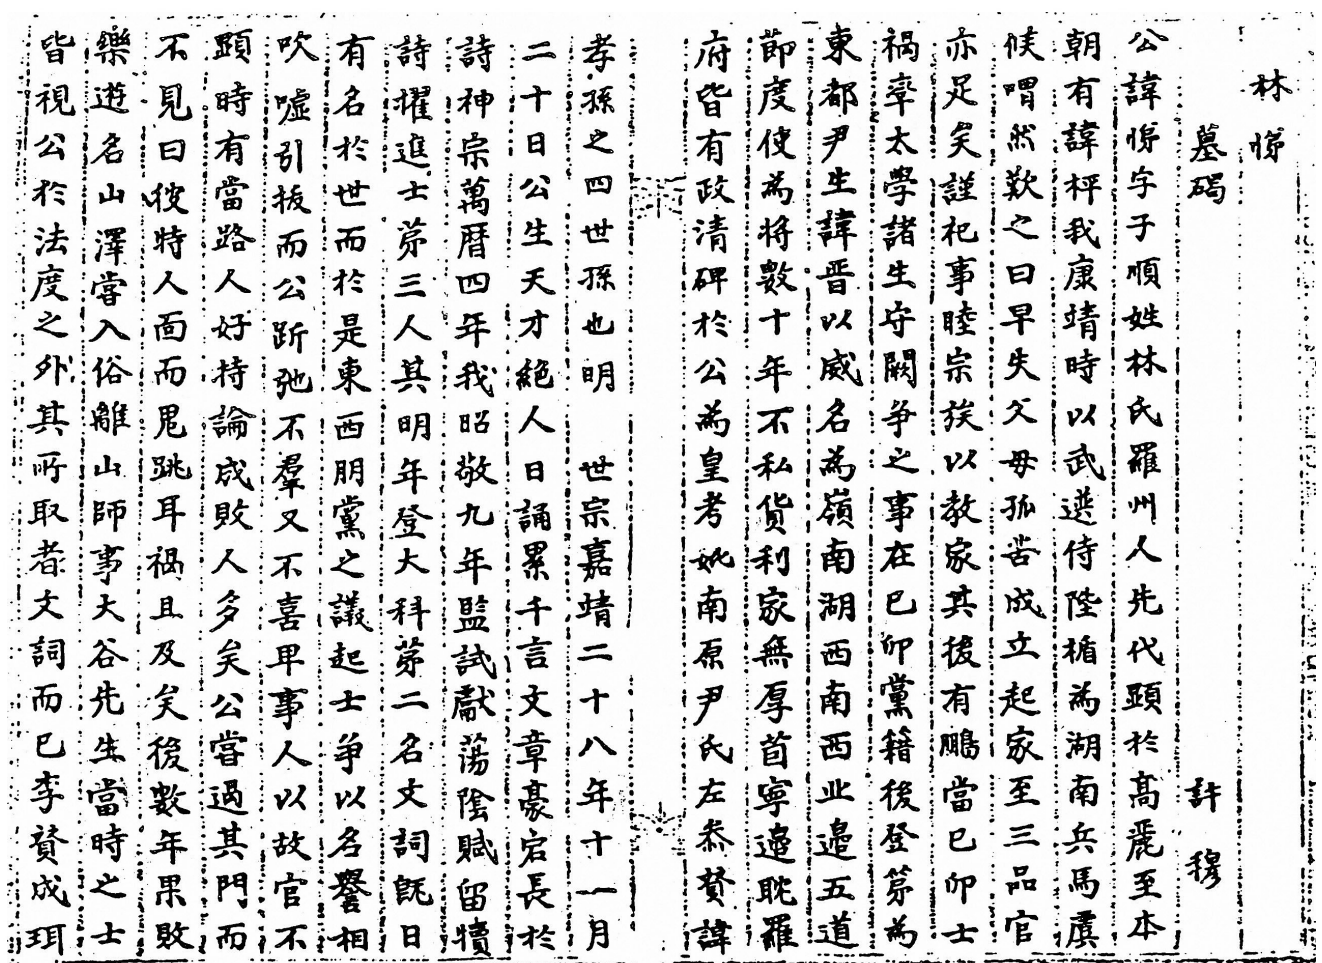 林悌
墓碣 許穆
公諱悌字子順姓林氏羅州人先代顯於高麗至本
朝有諱枰我康靖時以武選侍陛楯為湖南兵馬虞
候喟然歎之曰早失父母孤苦成立起家至三品官
亦足矣謹祀事睦宗族以教家其後有鵬當已卯士
禍率太學諸生守闕爭之事在已卯黨籍後登第為
東都尹生諱晋以威名為嶺南湖西南西北邊五道
節度使為將數十年不私貨利家無厚首寧邊耽羅
府皆有政清碑於公為皇考妣南原尹氏左叅贊諱
孝孫之四世孫也明 世宗嘉靖二十八年十一月
二十日公生天才絕人日誦累千言文章豪宕長於
詩神宗萬曆四年我昭敬九年監試獻蕩陰賦留犢
詩擢進士第三人其明年登大科第二名文詞旣日
有名於世而於是東西朋黨之議起士爭以名譽相
吹噓引拔而公跅弛不羣又不喜卑事人以故官不
顯時有當路人好持論成敗人多矣公嘗過其門而
不見曰彼特人面而鬼跳耳禍且及矣後數年果敗
樂遊名山澤嘗入俗離山師事大谷先生當時之士
皆視公於法度之外其所取者文詞而已李賛成珥